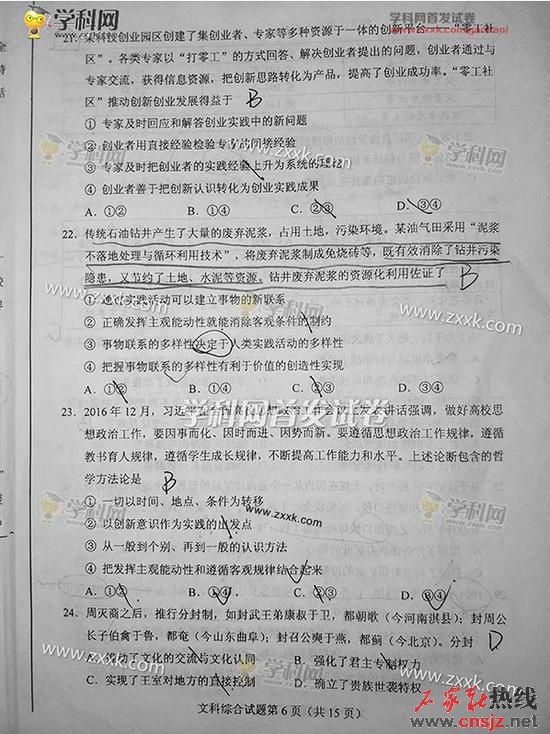 学科网
学科网首发试卷
21. 某科技创业园区创建了集创业者、专家等多种资源于一体的创新平台——“零工社
区”。各类专家以“打零工”的方式回答、解决创业者提出的问题，创业者通过与
专家交流，获得信息资源，把创新思路转化为产品，提高了创业成功率。“零工社
区”推动创新创业发展得益于 B
① 专家及时回应和解答创业实践中的新问题
② 创业者用直接经验检验专家的间接经验
③ 专家及时把创业者的实践经验上升为系统的理论
④ 创业者善于把创新认识转化为创业实践成果
A. ①② B. ①④ C. ②③ D. ③④
22. 传统石油钻井产生了大量的废弃泥浆，占用土地，污染环境。某油气田采用“泥浆
不落地处理与循环利用技术”，将废弃泥浆制成免烧砖等，既有效消除了钻井污染
隐患，又节约了土地、水泥等资源。钻井废弃泥浆的资源化利用佐证了 B
① 通过实践活动可以建立事物的新联系
② 正确发挥主观能动性就能消除客观条件的制约
③ 事物联系的多样性决定于人类实践活动的多样性
④ 把握事物联系的多样性有利于价值的创造性实现
A. ①② B. ①④ C. ②③ D. ③④
23. 2016 年 12 月，习近平在全国高校思想政治工作会议上发表讲话强调，做好高校思
想政治工作，要因事而化、因时而进、因势而新。要遵循思想政治工作规律，遵循
教书育人规律，遵循学生成长规律，不断提高工作能力和水平。上述论断包含的哲
学方法论是 B
① 一切以时间、地点、条件为转移
② 以创新意识作为实践的出发点
③ 从一般到个别、再到一般的认识方法
④ 把发挥主观能动性和遵循客观规律结合起来
A. ①② B. ①④ C. ②③ D. ③④
24. 周灭商之后，推行分封制，如封武王弟康叔于卫，都朝歌（今河南淇县）；封周公
长子伯禽于鲁，都奄（今山东曲阜）；封召公奭于燕，都蓟（今北京）。分封 D
A. 推动了文化的交流与文化认同 B. 强化了君主专制权力
C. 实现了王室对地方的直接控制 D. 确立了贵族世袭特权
文科综合试题第 6 页（共 15 页）
学科网
www.zxxk.com
学科网
www.zxxk.com
学科网
www.zxxk.com
学科网首发试卷
学科网
zxxk.com
学科网
www.zxxk.com
人家社热线
www.cnsjz.net